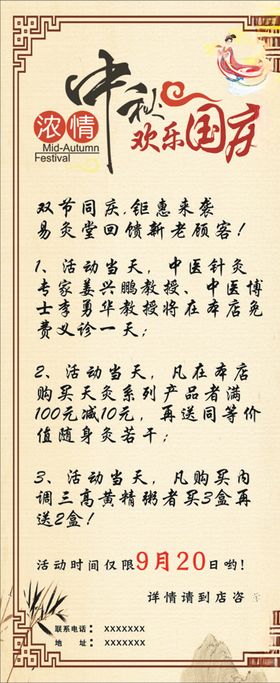 浓情
中秋
欢乐国庆
Mid-Autumn
Festival
双节同庆,钜惠来袭
易灸堂回馈新老顾客!
1、活动当天,中医针灸
专家姜兴鹏教授、中医博
士李勇华教授将在本店免
费义诊一天;
2、活动当天,凡在本店
购买天灸系列产品者满
100元减10元,再送同等价
值随身灸若干;
3、活动当天,凡购买内
调三高黄精粥者买3盒再
送2盒!
活动时间仅限9月20日哟!
详情请到店咨
联系电话:XXXXXXX
地 址:XXXXXXX